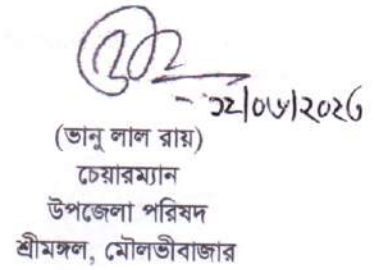 ১২/০৬/২০২৩
(ভানু লাল রায়)
চেয়ারম্যান
উপজেলা পরিষদ
শ্রীমঙ্গল, মৌলভীবাজার